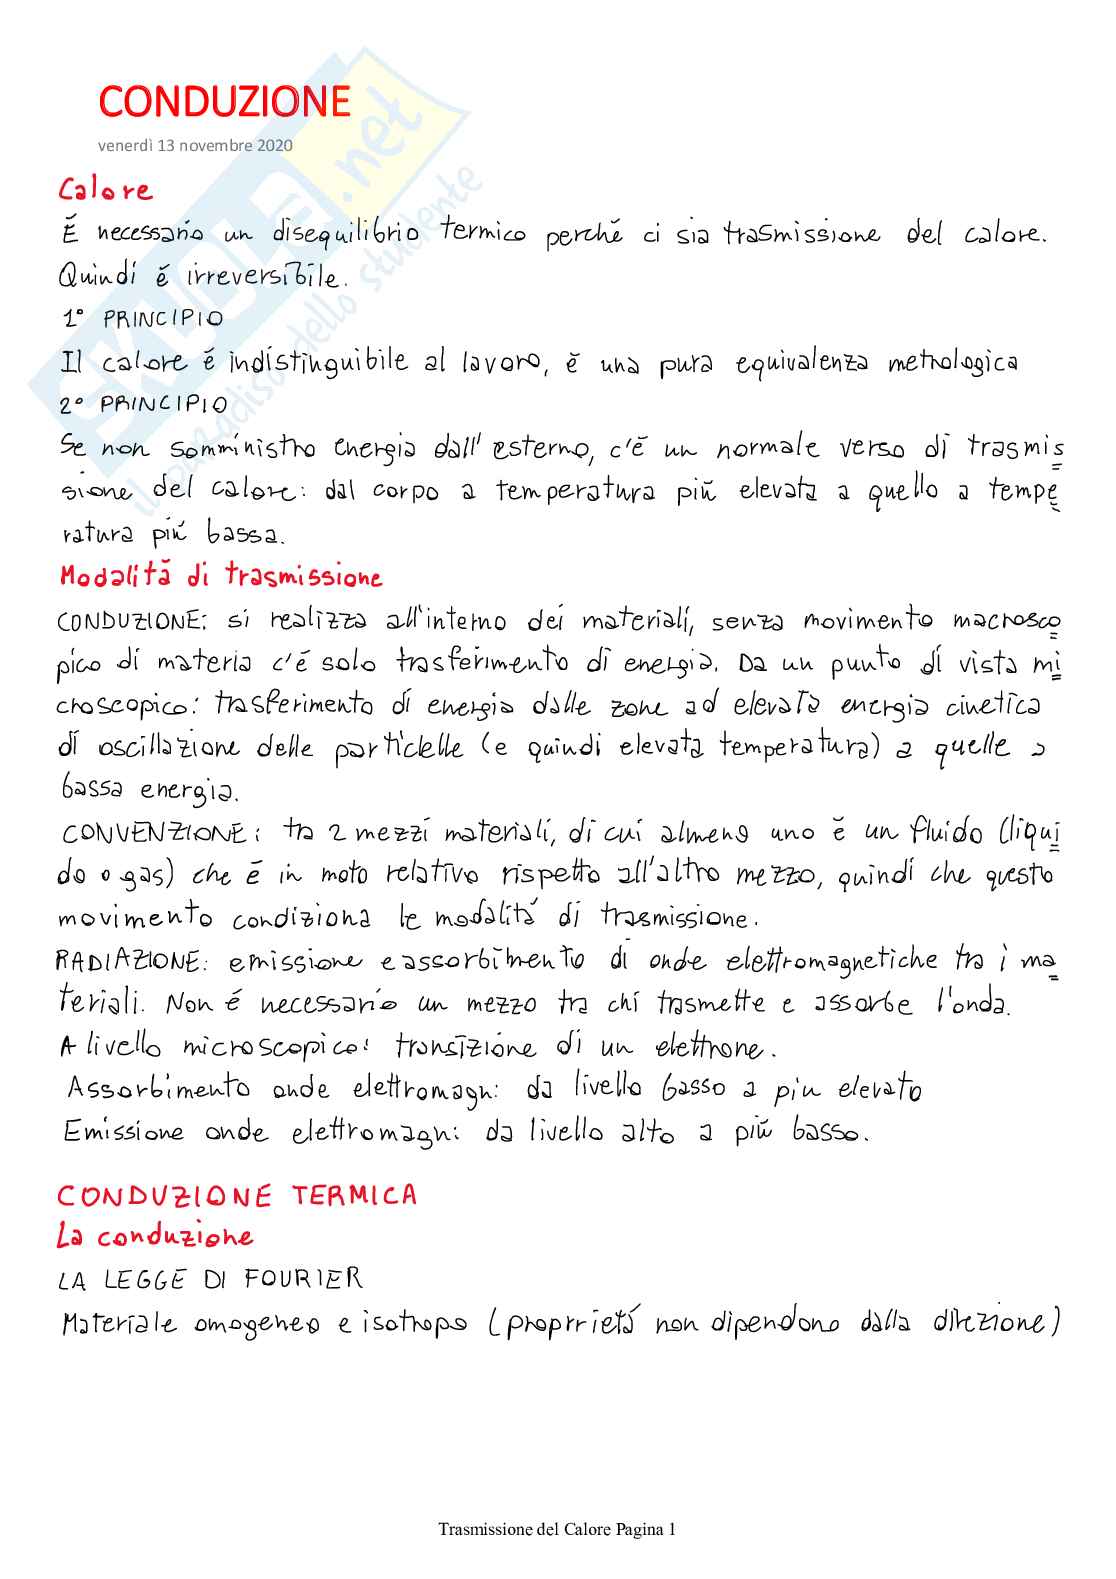 CONDUZIONE
venerdì 13 novembre 2020
Calore
È necessario un disequilibrio termico perché ci sia trasmissione del calore.
Quindi è irreversibile.
1° PRINCIPIO
Il calore è indistinguibile al lavoro, è una pura equivalenza metrologica
2° PRINCIPIO
Se non somministro energia dall'esterno, c'è un normale verso di trasmis
sione del calore: dal corpo a temperatura più elevata a quello a tempe
ratura più bassa.
Modalità di trasmissione
CONDUZIONE: si realizza all'interno dei materiali, senza movimento macrosco
pico di materia c'è solo trasferimento di energia. Da un punto di vista mi
croscopico: trasferimento di energia dalle zone ad elevata energia cinetica
di oscillazione delle particlelle (e quindi elevata temperatura) a quelle a
bassa energia.
CONVENZIONE: tra 2 mezzi materiali, di cui almeno uno è un fluido (liqui
do o gas) che è in moto relativo rispetto all'altro mezzo, quindi che questo
movimento condiziona le modalità di trasmissione.
RADIAZIONE: emissione e assorbimento di onde elettromagnetiche tra i ma
teriali. Non è necessario un mezzo tra chi trasmette e assorbe l'onda.
A livello microscopico: transizione di un elettrone.
Assorbimento onde elettromagn: da livello basso a piu elevato
Emissione onde elettromagn: da livello alto a più basso.
CONDUZIONE TERMICA
La conduzione
LA LEGGE DI FOURIER
Materiale omogeneo e isotropo (proprrietà non dipendono dalla direzione)
SKUOLA.net
il paradiso dello studente
Trasmissione del Calore Pagina 1